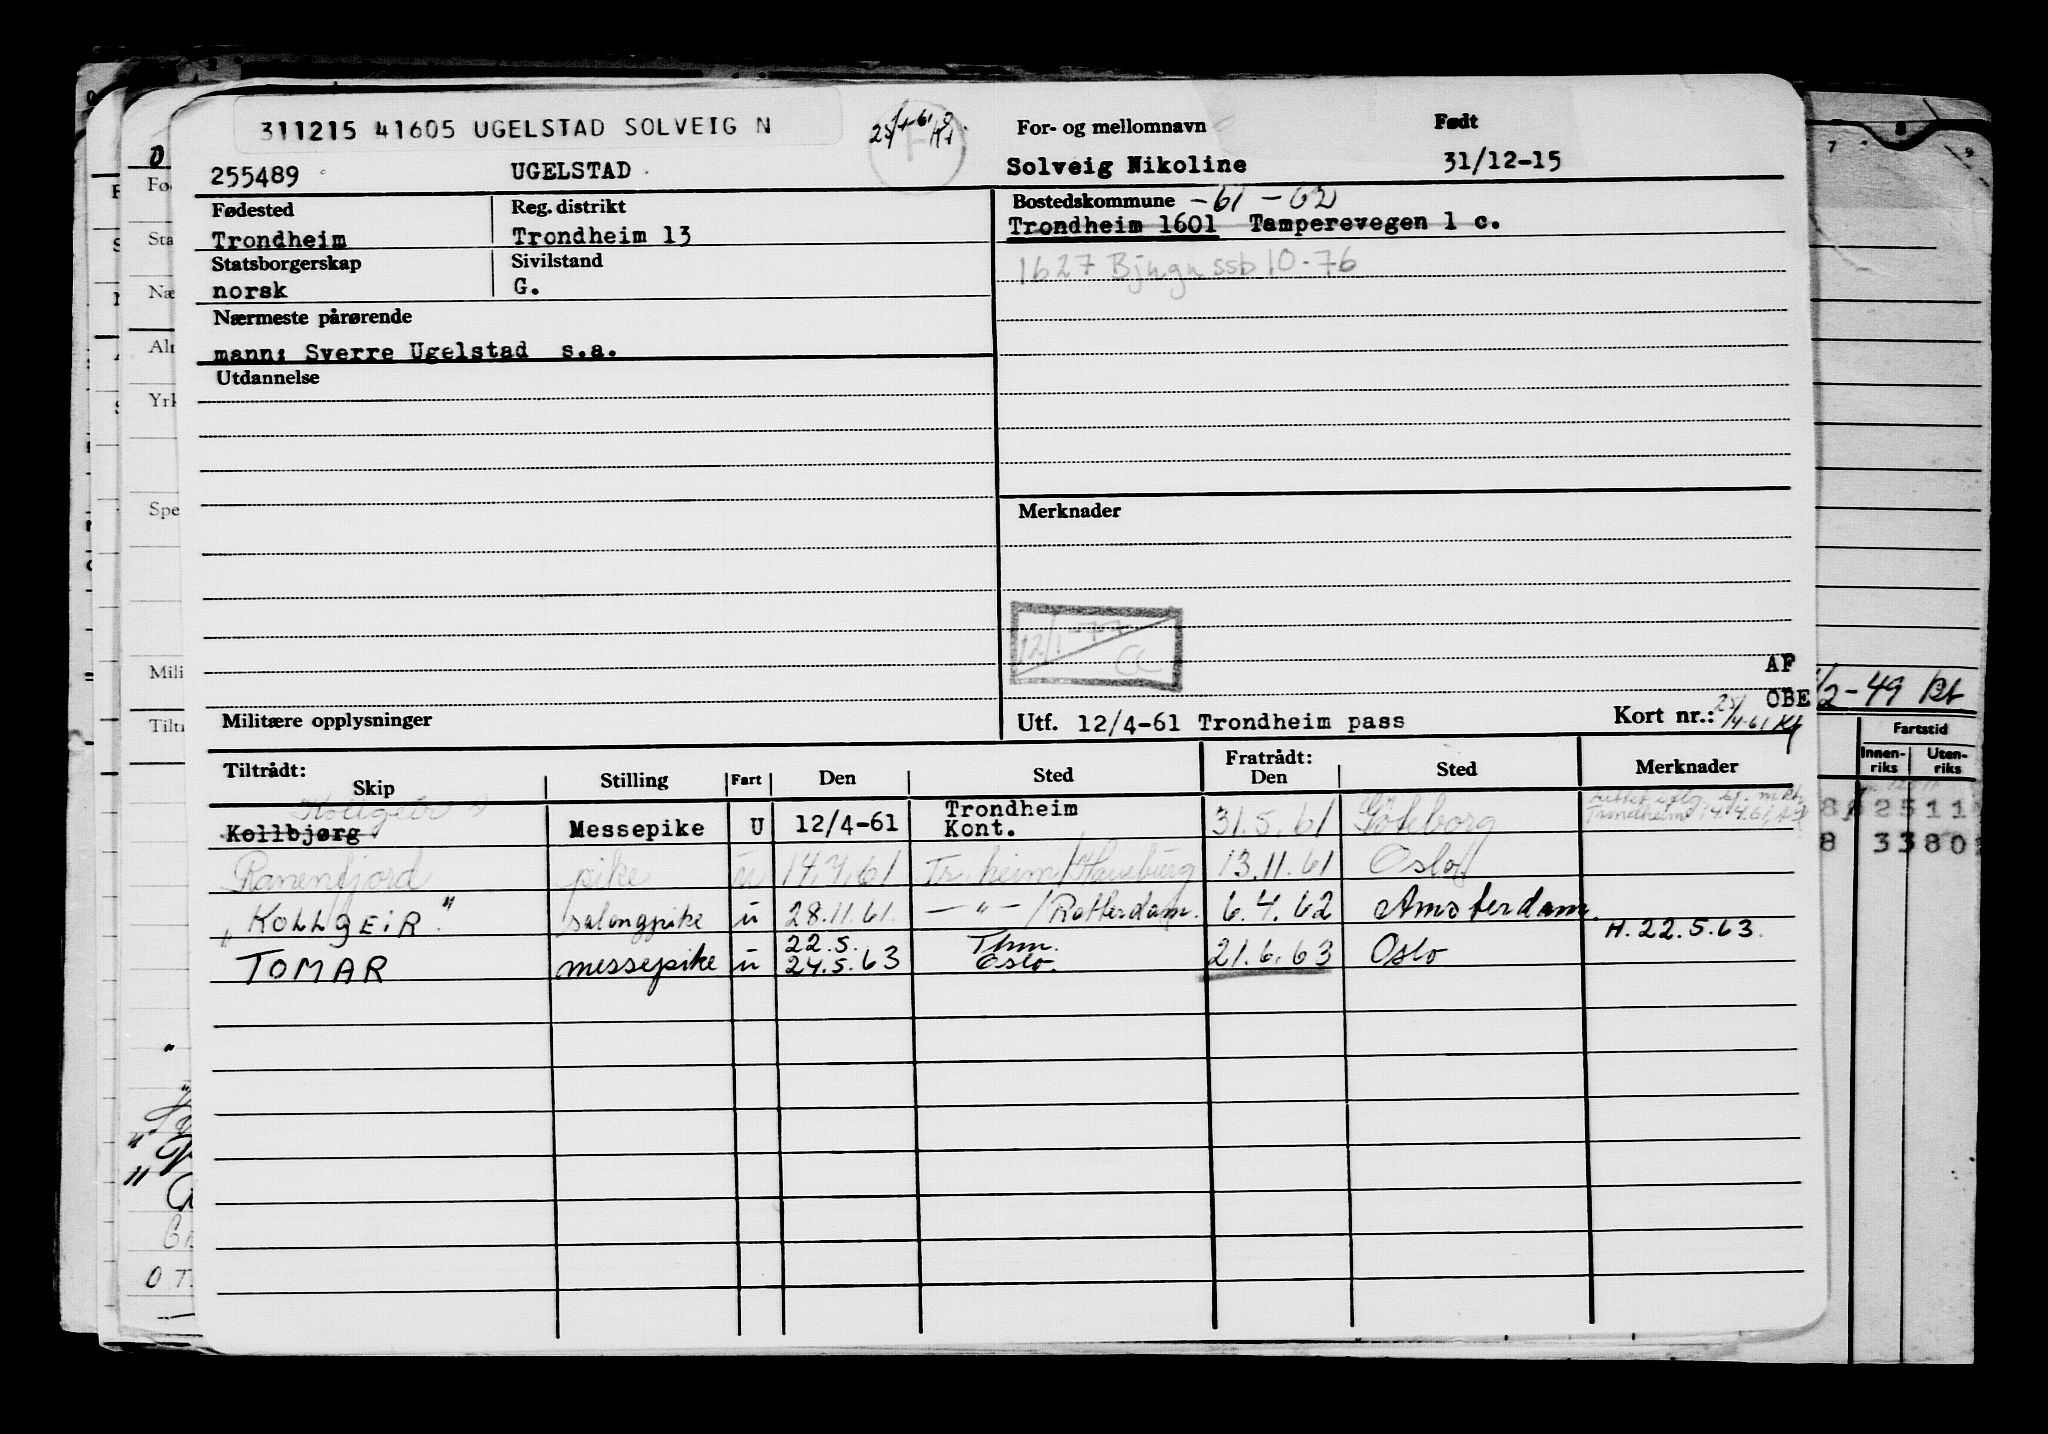 311215 41605 UGELSTAD SOLVEIG N
For- og mellomnavn Født
255489 UGELSTAD Solveig Nikoline 31/12-15
Fødested Reg. distrikt Bostedskommune -61-62
Trondheim Trondheim 13 Trondheim 1601 Tamperevegen 1 c.
Statsborgerskap Sivilstand 1627 Bjugn ssb 10-76
norsk G.
Nærmeste pårørende
mann: Sverre Ugelstad s.a.
Utdannelse
Merknader
12/1-77
AF
OBE
Militære opplysninger Utf. 12/4-61 Trondheim pass Kort nr.: 25/4-61 Kt
Tiltrådt: Fratrådt:
Skip Stilling Fart Den Sted Den Sted Merknader
Kollgeir
Kollbjørg Messepike U 12/4-61 Trondheim Kont. 31.5.61 Göteborg
Trondheim 14.4.61
Ranenfjord pike u 14.7.61 Tr.heim/Hamburg 13.11.61 Oslo
"KOLLGEIR" salongpike u 28.11.61 — " — /Rotterdam. 6.4.62 Amsterdam.
H. 22.5.63.
TOMAR messepike u 22.5. 24.5.63 Thm. Oslo. 21.6.63 Oslo
/2-49 Kt
Fartstid
Innen-riks Uten-riks
8 2511
8 3380
Mili
Spe
Yrk